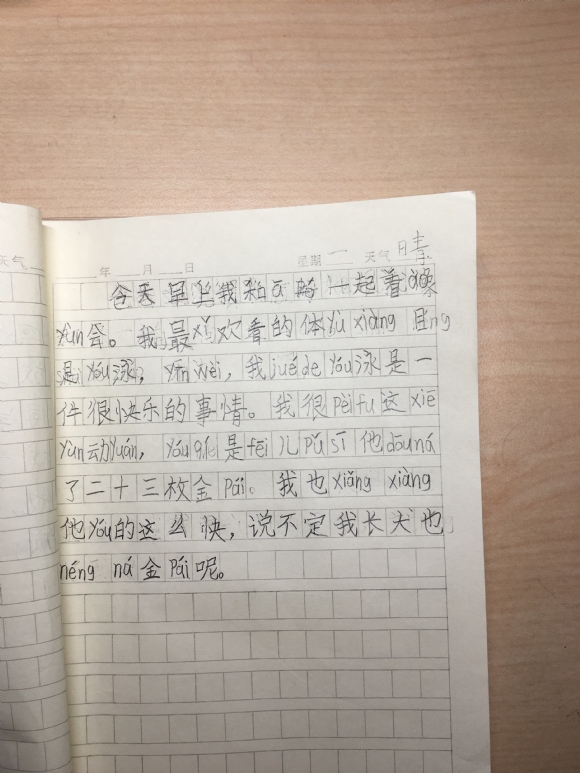 天气
年 月 日 星期 一 天气 晴
今天早上我和ā 一起看ào
yùn会。我最xǐ欢看的体yù xiàng
是yóu泳，yīn wèi，我jué de yóu泳是一
件很快乐的事情。我很pèi fu这xiē
yùn动yuán，yóu 是fēi儿pǔ sī他dōu ná
了二十三枚金pái。我也xiǎng xiàng
他yóu的这么快，说不定我长大也
néng ná金pái呢。